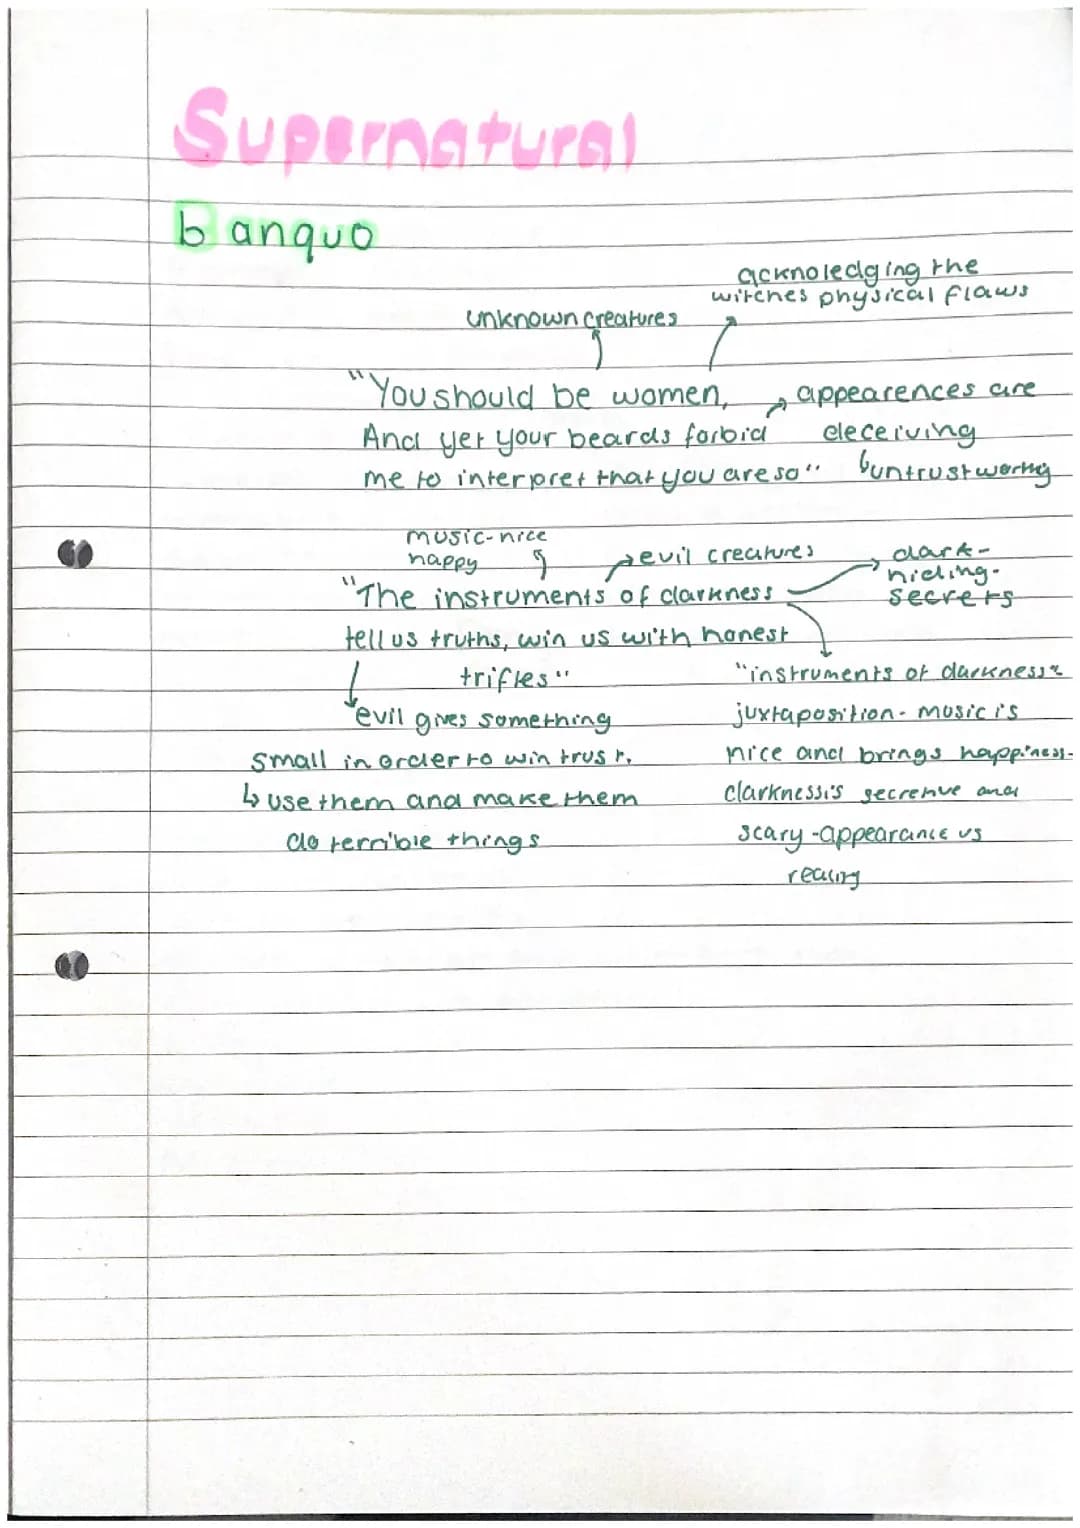 Supernatural
banquo
acknoledging the
witches physical flaws
unknown creatures
"You should be women,
appearences are
And yet your beards forbid
deceiving
me to interpret that you are so"
↳untrustworthy
music-nice
happy
evil creatures
dark-
hiding-
secrets
"The instruments of darkness
tell us truths, win us with honest
trifles"
"instruments of darkness"
evil gives something
small in order to win trust.
↳ use them and make them
do terrible things
juxtaposition- music is
nice and brings happiness-
darkness is secretive and
scary -appearance vs
reality